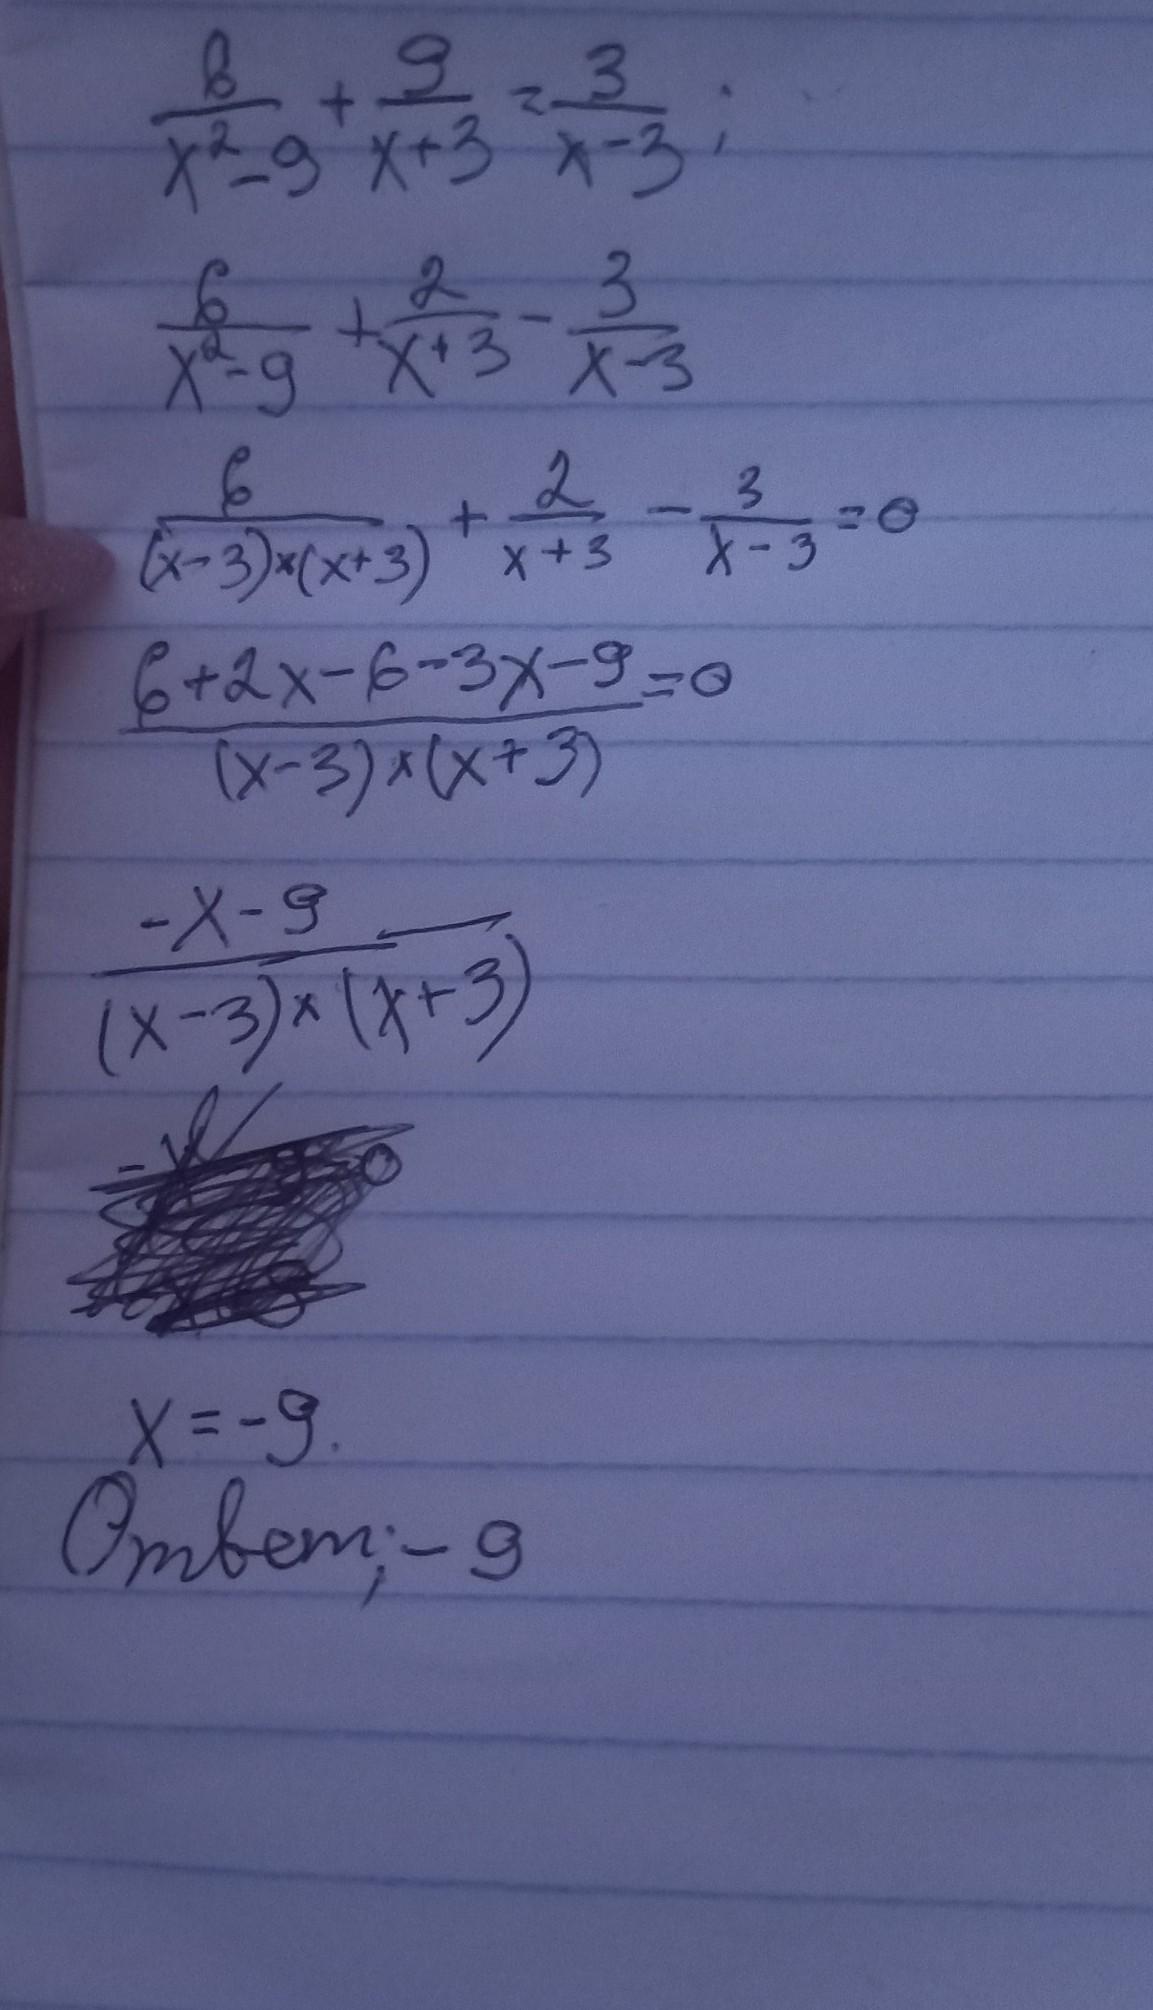 6/(x²-9) + 9/(x+3) = 3/(x-3);
6/(x²-9) + 2/(x+3) - 3/(x-3)
6/((x-3)×(x+3)) + 2/(x+3) - 3/(x-3) = 0
(6+2x-6-3x-9)/((x-3)×(x+3)) = 0
(-x-9)/((x-3)×(x+3))
x=-9.
Ответ; -9